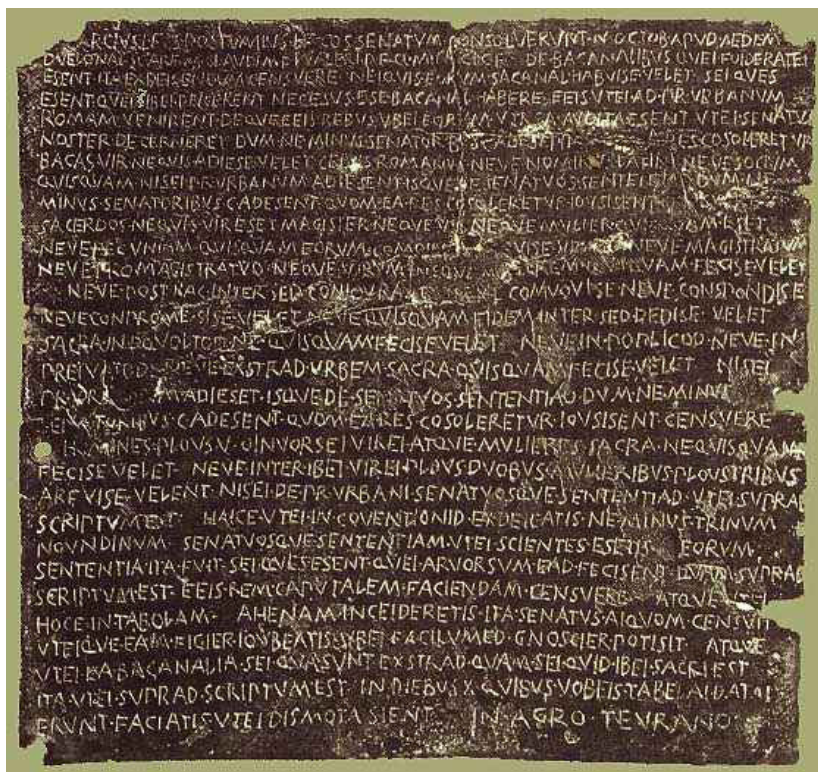 ARCIVS·L·F·S·POSTVMIVS·L·F·COS·SENATVM·CONSOLVERVNT·N·OCTOB·APVD·AEDEM
DVELONAI·SC·ARF·M·CLAVDI·M·F·VALERI·P·F·Q·MINVCI·C·F· DE·BACANALIBVS·QVEI·FOIDERATEI
ESENT·ITA·EXDEICENDVM·CENSVERE· NEIQVIS·EORVM·SACANAL·HABVISE·VELET· SEI·QVES
ESENT·QVEI·SIBEI·DEICERENT·NECESVS·ESE·BACANAL·HABERE·EEIS·VTEI·AD·PR·VRBANVM
ROMAM·VENIRENT·DEQVE·EEIS·REBVS·VBEI·EORVM·VTR·A·AVDITA·ESENT·VTEI·SENATVS
NOSTER·DECERNERET·DVM·NE·MINVS·SENATORBVS·C·ADESENT COSOLERETVR
BACAS·VIR·NEQVIS·ADIESE·VELET·CEIVIS·ROMANVS·NEVE·NOMINVS·LATINI·NEVE·SOCIVM
QVISQVAM·NISEI·PR·VRBANVM·ADIESENT·ISQVE·DE·SENATVOS·SENTENTIAD·DVM·NE
MINVS·SENATORIBVS·C·ADESENT·QVOM·EA·RES·COSOLERETVR·IOVSISENT
SACERDOS·NEQVIS·VIR·ESET·MAGISTER·NEQVE·VIR·NEQVE·MVLIER·QVISQVAM·ESET
NEVE·PECVNIAM·QVISQVAM·EORVM·COMOINEM VISE·VELET·NEVE·MAGISTRATVM
NEVE·PRO·MAGISTRATVO·NEQVE·VIRVM· QVISQVAM·FECISE·VELET
NEVE·POST·HAC·INTER·SED·CONIOVRASE NEVE·COMVOVISE·NEVE·CONSPONDISE
NEVE·CONPROMESISE·VELET·NEVE·QVISQVAM·FIDEM·INTER·SED·DEDISE·VELET
SACRA·IN·DQVOLTOD·NE·QVISQVAM·FECISE·VELET· NEVE·IN·POPLICOD·NEVE·IN
PREIVATOD·NEVE·EXSTRAD·VRBEM·SACRA·QVISQVAM·FECISE·VELET· NISEI
PR·VRBANVM·ADIESET·ISQVE·DE·SENATVOS·SENTENTIAD·DVM·NE·MINVS
SENATORIBVS·C·ADESENT·QVOM·EA·RES·COSOLERETVR·IOVSISENT·CENSVERE
HOMINES·PLOVS·V·OINVORSEI·VIREI·ATQVE·MVLIERES·SACRA·NE·QVISQVAM
FECISE·VELET· NEVE·INTER·IBEI·VIREI·PLOVS·DVOBVS·MVLIERIBVS·PLOVS·TRIBVS
ARFVISE·VELENT·NISEI·DE·PR·VRBANI·SENATVOSQVE·SENTENTIAD·VTEI·SVPRAD
SCRIPTVM·EST· HAICE·VTEI·IN·COVENTIONID·EXDEICATIS·NE·MINVS·TRINVM
NOVNDINVM· SENATVOSQVE·SENTENTIAM·VTEI·SCIENTES·ESETIS· EORVM
SENTENTIA·ITA·FVIT·SEI·QVES·ESENT·QVEI·ARVORSVM·EAD·FECISENT·QVAM·SVPRAD
SCRIPTVM·EST·EEIS·REM·CAPVTALEM·FACIENDAM·CENSVERE· ATQVE·VTEI
HOCE·IN·TABOLAM· AHENAM·INCEIDERETIS·ITA·SENATVS·AIQVOM·CENSVIT
VTEIQVE·EAM·FIGIER·IOVBEATIS·VBEI·FACILVMED·GNOSCIER·POTISIT· ATQVE
VTEI·EA·BACANALIA·SEI·QVA·SVNT·EXSTRAD·QVAM·SEI·QVID·IBEI·SACRI·EST
ITA·VTEI·SVPRAD·SCRIPTVM·EST· IN·DIEBVS·X·QVIBVS·VOBEIS·TABELAI·DATAI
ERVNT·FACIATIS·VTEI·DISMOTA·SIENT· IN·AGRO·TEVRANO